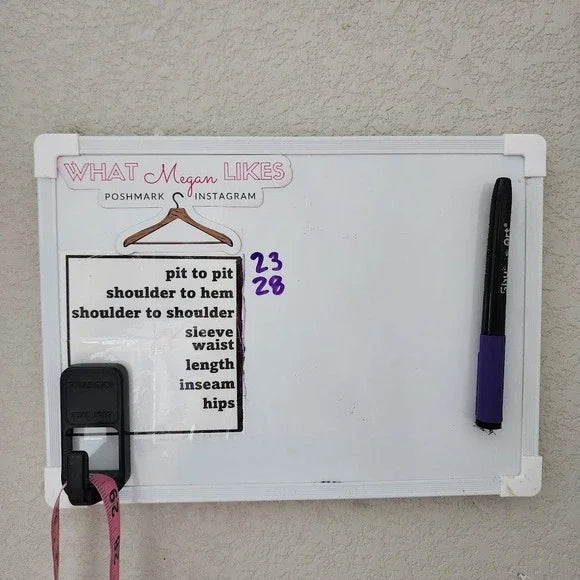 WHAT Megan LIKES
POSHMARK INSTAGRAM
pit to pit 23
shoulder to hem 28
shoulder to shoulder
sleeve
waist
length
inseam
hips
29